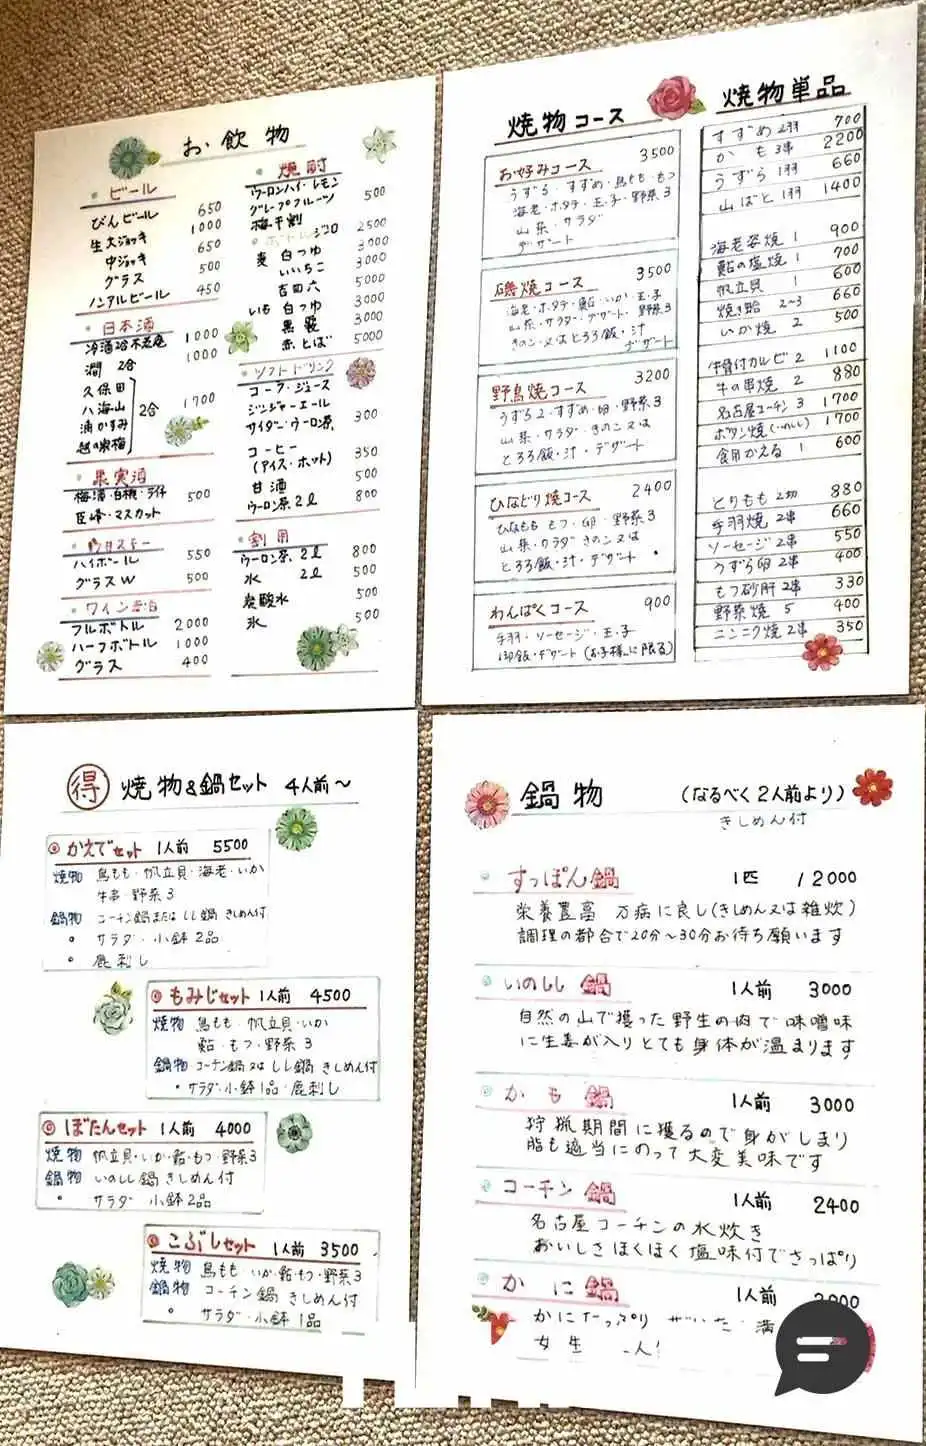 お飲物
ビール
びんビール 650
生大ジョッキ 1000
中ジョッキ 650
グラス 500
ノンアルビール 450
日本酒
冷酒2合 1000
燗 2合 1000
久保田
八海山
浦かすみ
越の寒梅
2合 1700
果実酒
梅酒・白桃・ライチ 500
巨峰・マスカット
ハイボール 550
グラスW 500
ワイン
フルボトル 2000
ハーフボトル 1000
グラス 400
焼酎
ウーロンハイ・レモン
グレープフルーツ 500
梅干割
ボトル
2500
麦 白つゆ 3000
いいちこ 3000
吉四六 5000
いも 白つゆ 3000
黒霧 3000
赤とば 5000
ソフトドリンク
コーラ・ジュース
ジンジャーエール
サイダー・ウーロン茶 300
コーヒー 350
(アイス・ホット)
甘酒 500
ウーロン茶2ℓ 800
割用
ウーロン茶2ℓ 800
水 2ℓ 500
炭酸水 500
氷 500
焼物コース
お好みコース 3500
うずら・すずめ・鳥もも・もつ
海老・ホタテ・玉・子・野菜3
山菜・サラダ
デザート
磯焼コース 3500
海老・ホタテ・鮎・いか・玉・子
山菜・サラダ・デザート・野菜3
きのこ・又はとろろ飯・汁
デザート
野鳥焼コース 3200
うずら2・すずめ・卵・野菜3
山菜・サラダ きのこ又は
とろろ飯・汁・デザート
ひなどり焼コース 2400
ひなもも もつ・卵・野菜3
山菜・サラダ きのこ又は
とろろ飯・汁・デザート
わんぱくコース 900
手羽・ソーセージ・玉・子
御飯・デザート(お子様に限る)
焼物単品
すずめ 2羽 700
かも 3串 2200
うずら 1羽 660
山ばと 1羽 1400
海老姿焼 1 900
鮎の塩焼 1 700
帆立貝 1 600
焼き蛤 2~3 660
いか焼 2 500
牛骨付カルビ 2 1100
牛の串焼 2 880
名古屋コーチン 3 1700
ボタン焼(いのしし) 1700
食用かえる 1 600
とりもも 2切 880
手羽焼 2串 660
ソーセージ 2串 550
うずら卵 2串 400
もつ砂肝 2串 330
野菜焼 5 400
ニンニク焼 2串 350
得 焼物&鍋セット 4人前~
かえでセット 1人前 5500
焼物 鳥もも・帆立貝・海老・いか
牛串・野菜3
鍋物 コーチン鍋またはしし鍋 きしめん付
サラダ・小鉢2品
鹿刺し
もみじセット 1人前 4500
焼物 鳥もも・帆立貝・いか
鮎・もつ・野菜3
鍋物 コーチン鍋又はしし鍋 きしめん付
サラダ・小鉢1品・鹿刺し
ぼたんセット 1人前 4000
焼物 帆立貝・いか・鮎・もつ・野菜3
鍋物 いのしし鍋 きしめん付
サラダ 小鉢2品
こぶしセット 1人前 3500
焼物 鳥もも・いか・鮎・もつ・野菜3
鍋物 コーチン鍋 きしめん付
サラダ・小鉢1品
鍋物 (なるべく2人前より)
きしめん付
すっぽん鍋 1匹 12000
栄養豊富 万病に良し(きしめん又は雑炊)
調理の都合で20分~30分お待ち願います
いのしし鍋 1人前 3000
自然の山で獲った野生の肉で味噌味
に生姜が入りとても身体が温まります
かも鍋 1人前 3000
狩猟期間に獲るので身がしまり
脂も適当にのって大変美味です
コーチン鍋 1人前 2400
名古屋コーチンの水炊き
おいしさほくほく塩味付でさっぱり
かに鍋 1人前
かにたっぷり